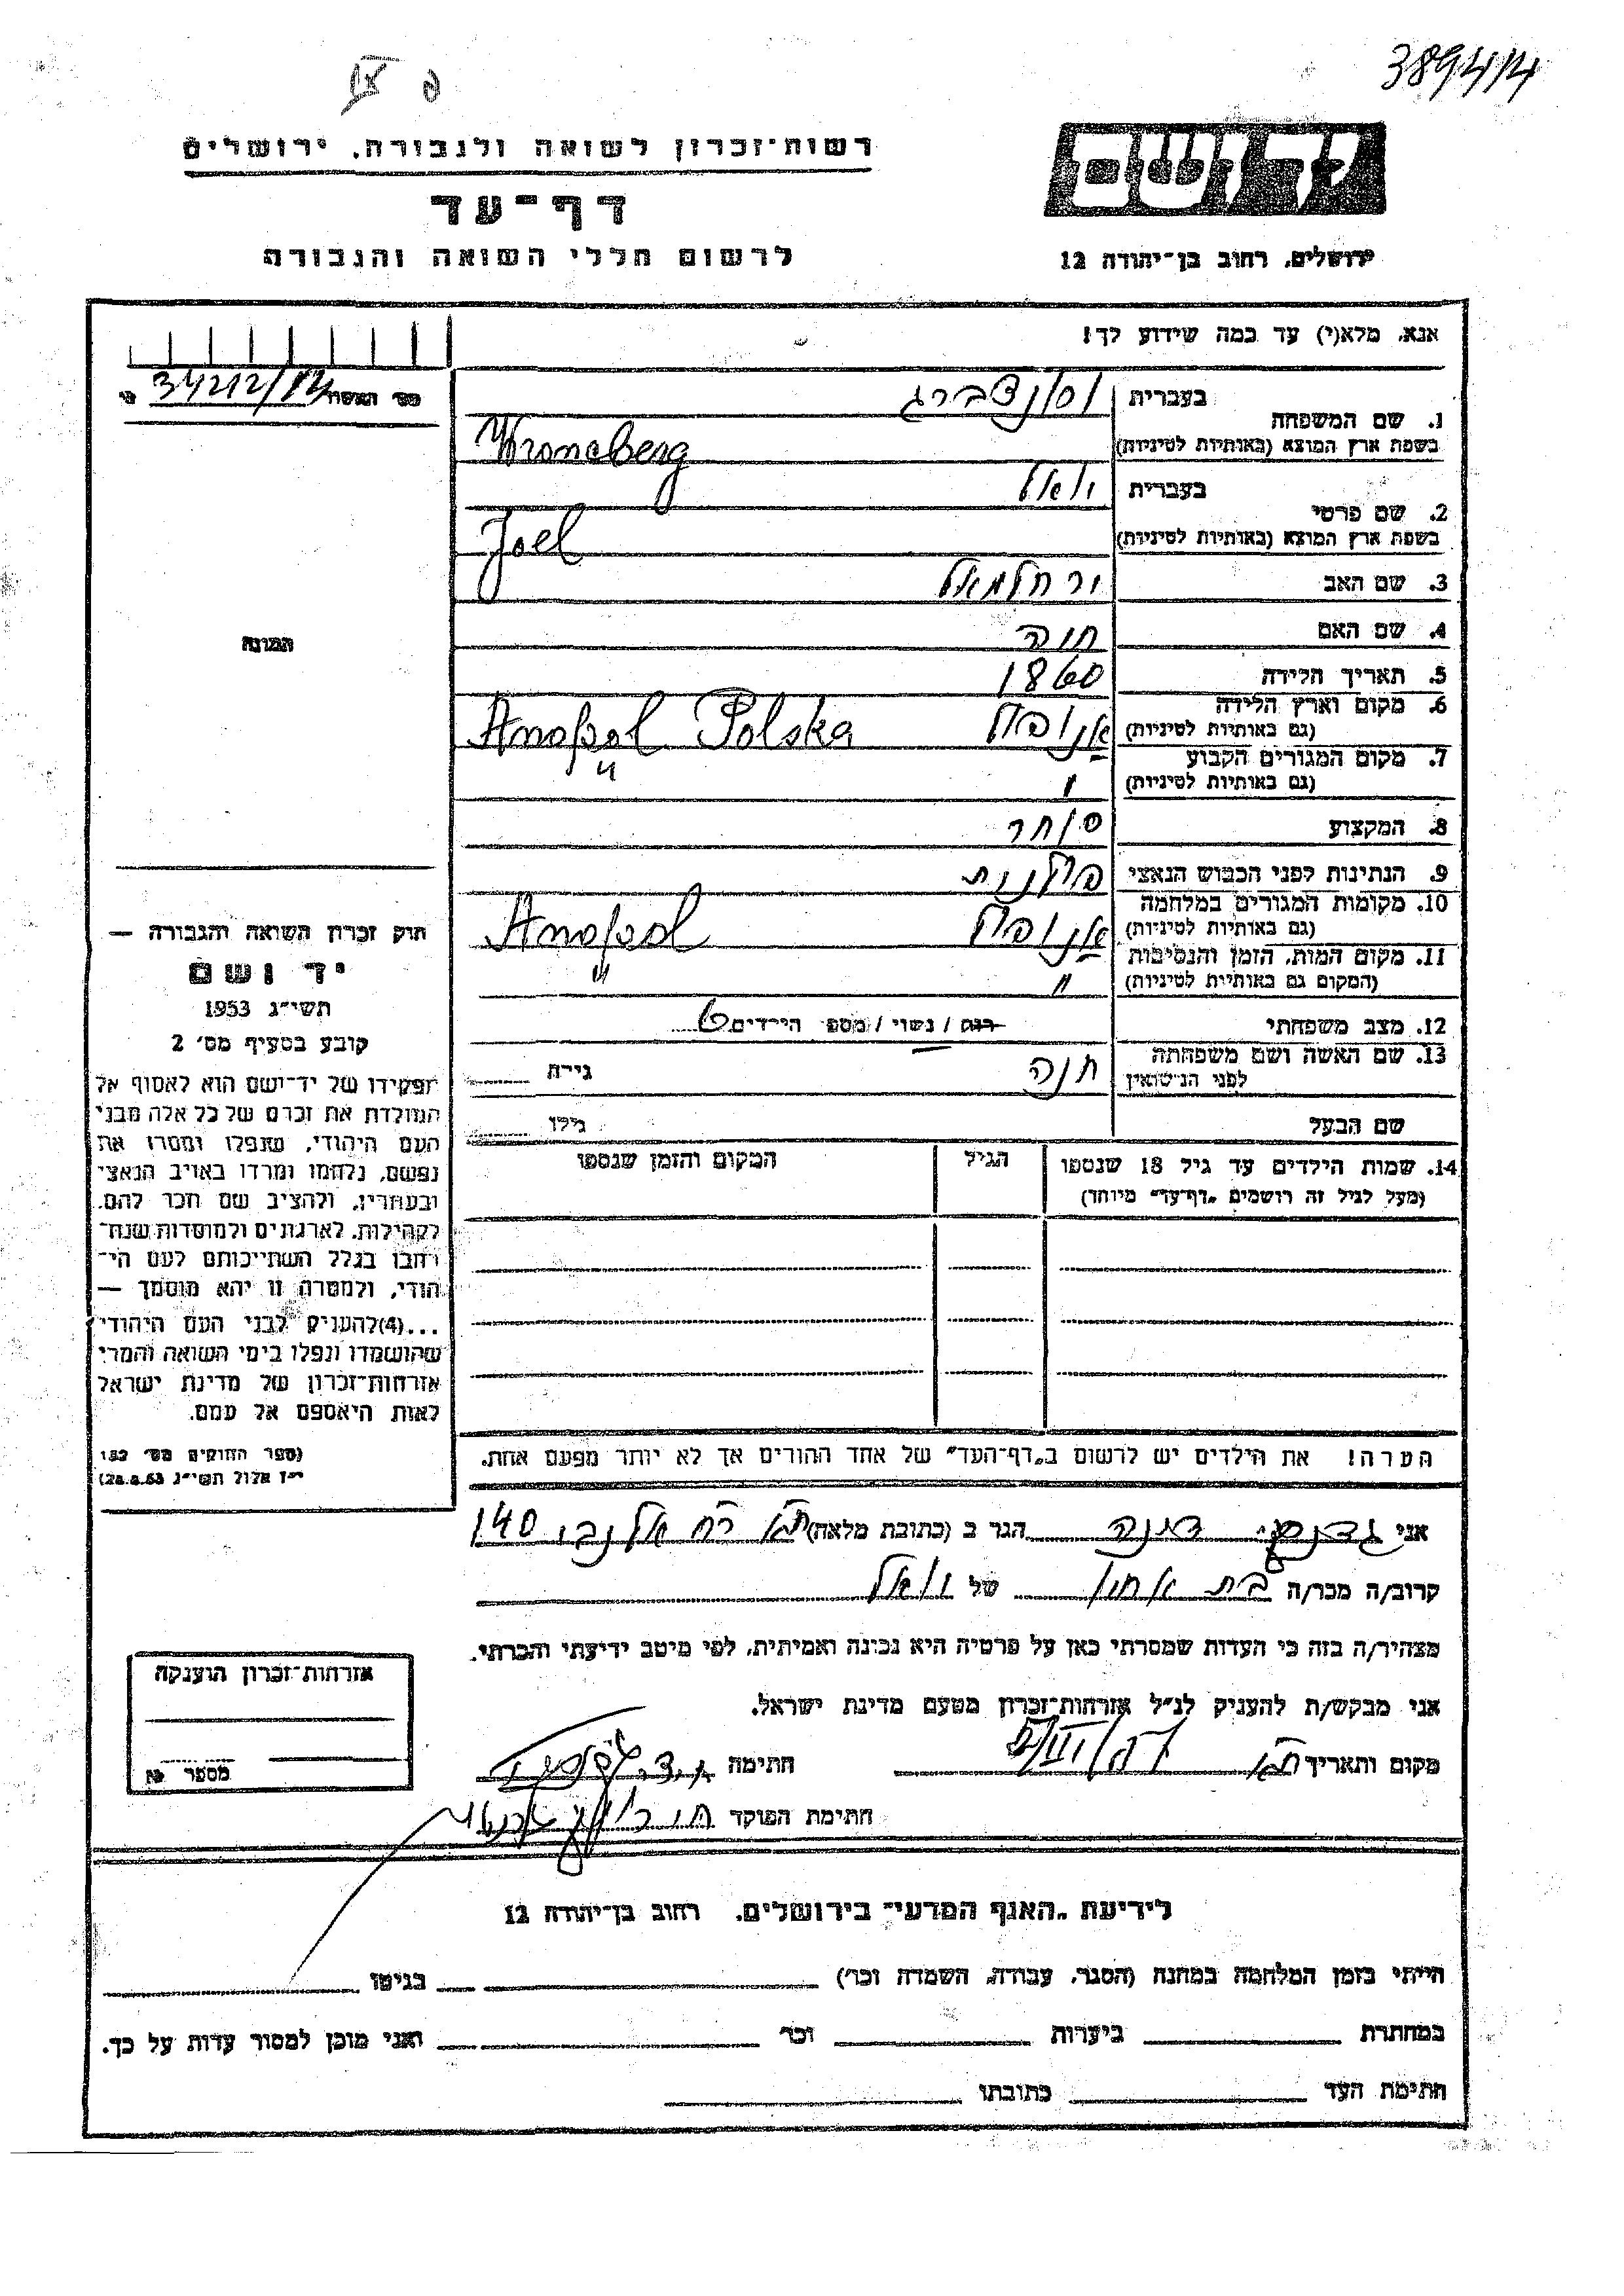 389414
רשות־זכרון לשואה ולגבורה, ירושלים
דף־עד
לרשום חללי השואה והגבורה
יד ושם
ירושלים, רחוב בן־יהודה 12
אנא, מלא(י) עד כמה שידוע לך!
1. שם המשפחה
בעברית
בשפת ארץ המוצא (באותיות לטיניות)
2. שם פרטי
בעברית יואל
בשפת ארץ המוצא (באותיות לטיניות) Joel
3. שם האב ירחמיאל
4. שם האם חוה
5. תאריך הלידה 1860
6. מקום וארץ הלידה
(גם באותיות לטיניות) אנופול Anopol Polska
7. מקום המגורים הקבוע
(גם באותיות לטיניות) " "
8. המקצוע סוחר
9. הנתינות לפני הכבוש הנאצי פולנית
10. מקומות המגורים במלחמה
(גם באותיות לטיניות) אנופול Anopol
11. מקום המות, הזמן והנסיבות
(המקום גם באותיות לטיניות) " "
12. מצב משפחתי רוק / נשוי / מספר הילדים 6
13. שם האשה ושם משפחתה
לפני הנישואין חנה גילה
שם הבעל גילו
14. שמות הילדים עד גיל 18 שנספו
(מעל לגיל זה רושמים "דף־עד" מיוחד)
הגיל
המקום והזמן שנספו
הערה! את הילדים יש לרשום ב"דף־העד" של אחד ההורים אך לא יותר מפעם אחת.
מס' האשה 34212/12
התמונה
חוק זכרון השואה והגבורה —
יד ושם
תשי"ג 1953
קובע בסעיף מס' 2
תפקידו של יד־ושם הוא לאסוף אל
המולדת את זכרם של כל אלה מבני
העם היהודי, שנפלו ומסרו את
נפשם, נלחמו ומרדו באויב הנאצי
ובעוזריו, ולהציב שם וזכר להם,
לקהילות, לארגונים ולמוסדות שנח־
רבו בגלל השתייכותם לעם הי־
הודי, ולמטרה זו יהא מוסמך —
...(4)להעניק לבני העם היהודי
שהושמדו ונפלו בימי השואה והמרי
אזרחות־זכרון של מדינת ישראל
לאות היאספם אל עמם.
(ספר החוקים מס' 132
י"ז אלול תשי"ג 28.8.53)
אני דינה הגר ב (כתובת מלאה) ת"א רח' אלנבי 140
קרוב/ה מכר/ה בת אחיו של יואל
מצהיר/ה בזה כי העדות שמסרתי כאן על פרטיה היא נכונה ואמיתית, לפי מיטב ידיעתי והכרתי.
אני מבקש/ת להעניק לנ"ל אזרחות־זכרון מטעם מדינת ישראל.
מקום ותאריך ת"א חתימה
חתימת הפוקד
אזרחות־זכרון הוענקה
מספר
לידיעת "האגף המדעי" בירושלים, רחוב בן־יהודה 12
הייתי בזמן המלחמה במחנה (הסגר, עבודה, השמדה וכו') בגיטו
במחתרת ביערות וכו' ואני מוכן למסור עדות על כך.
חתימת העד כתובתו